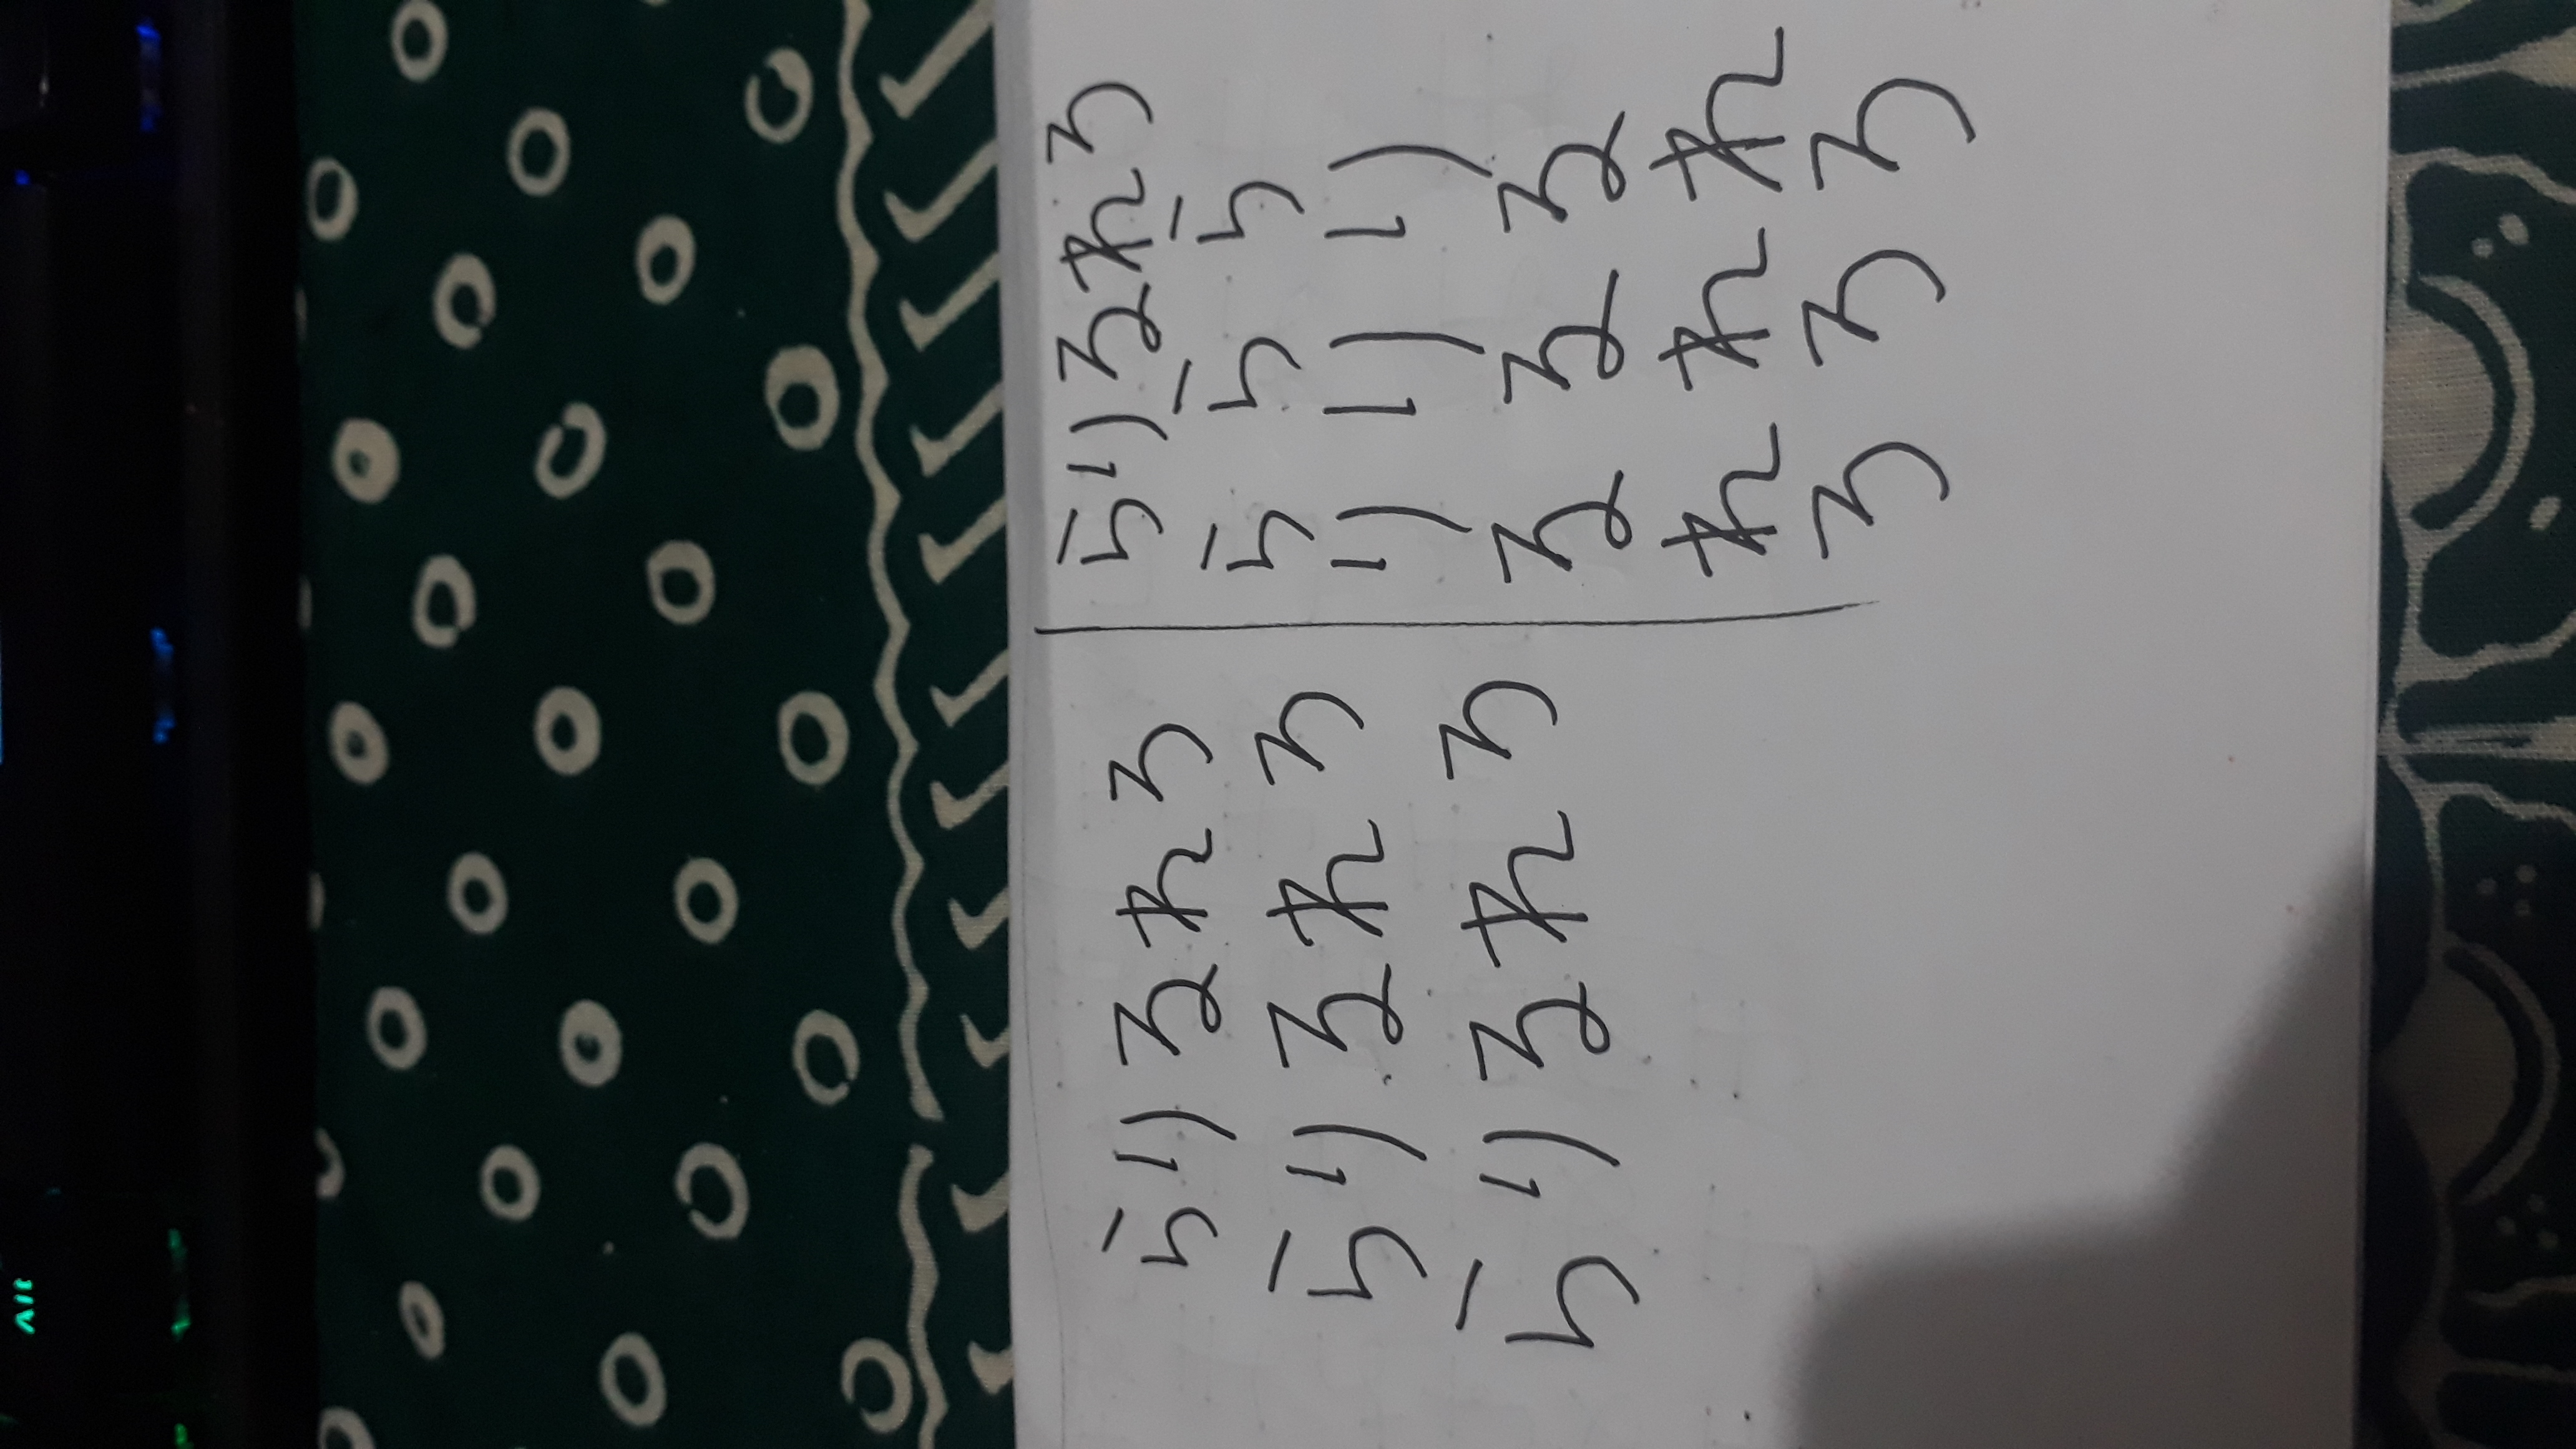 Alt
らりるれろ
らりるれろ
らりるれろ
らりるれろ
ららら
りりり
るるる
れれれ
ろろろ